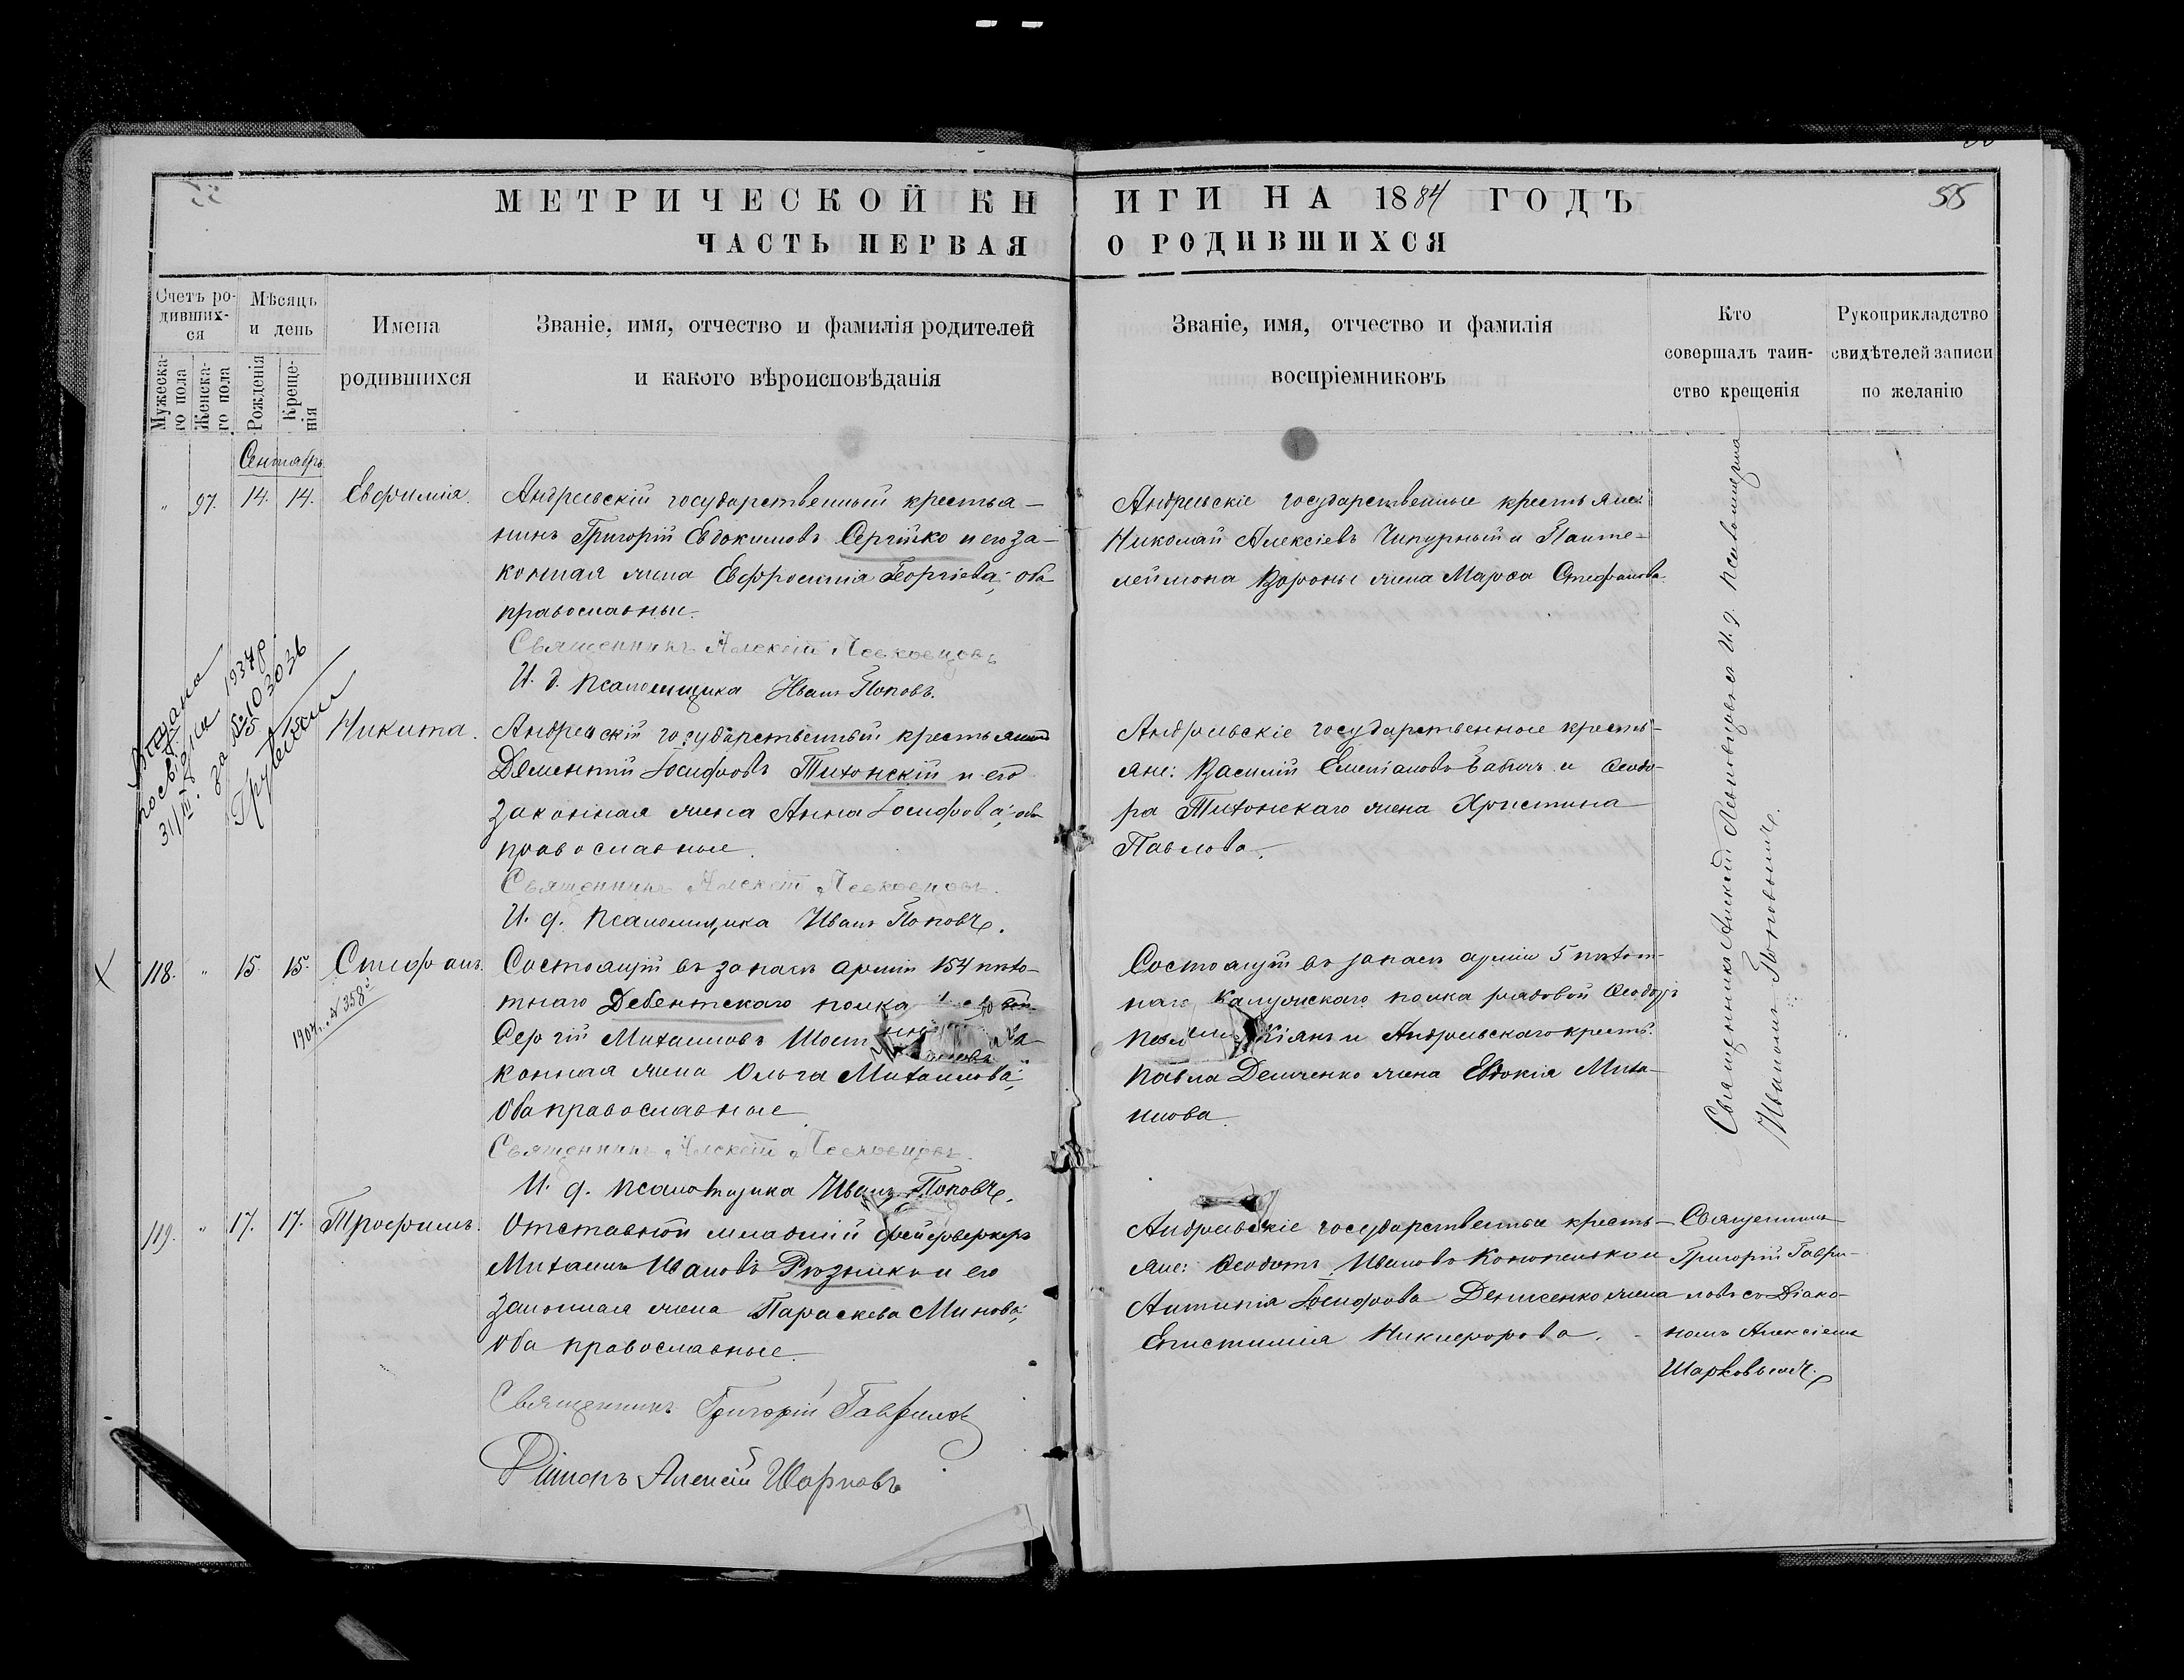 МЕТРИЧЕСКОЙ КНИГИ НА 1884 ГОДЪ
55
ЧАСТЬ ПЕРВАЯ О РОДИВШИХСЯ
Счетъ ро-
дивших-
ся
Мужеска-
го пола
Женска-
го пола
Мѣсяцъ
и день
Рожденія
Креще-
нія
Имена
родившихся
Званіе, имя, отчество и фамилія родителей
и какого вѣроисповѣданія
Званіе, имя, отчество и фамилія
воспріемниковъ
Кто
совершалъ таин-
ство крещенія
Рукоприкладство
свидѣтелей записи
по желанію
Сентябрь
" 97. 14. 14. Евфимія.
Андреевскій государственный крестья-
нинъ Григорій Евдокимовъ Сергійко и его за-
конная жена Евфросинія Георгіева; оба
православные.
Священникъ Алексій
И. д. псаломщика Иванъ Поповъ.
Андреевскіе государственные крестьяне:
Николай Алексіевъ Чипурный и Панте-
леймона Вороны жена Марѳа Стефанова.
Выдано
31/III 1937 г.
за № 103036
15 Никита.
Андреевскій государственный крестьянинъ
Дементій Іосифовъ Тихонскій и его
законная жена Анна Іосифова; оба
православные.
Священникъ Алексій
И. д. псаломщика Иванъ Поповъ.
Андреевскіе государственные кресть-
яне: Василій Емеліановъ Бабичъ и Ѳеодо-
ра Тихонскаго жена Христина
Павлова.
Х 118. " 15. 15. Стефанъ.
1904. № 358
Состоящій въ запасѣ арміи 154 пѣхо-
тнаго Дебентскаго полка
Сергій Михаиловъ за-
конная жена Ольга Михаилова;
оба православные.
Священникъ Алексій
И. д. псаломщика Иванъ Поповъ.
Состоящій въ запасѣ арміи 5 пѣхот-
наго Калужскаго полка рядовой Ѳеодоръ
Кіянъ и Андреевскаго крест.
Павла Демченко жена Евдокія Миха-
илова.
Священникъ Алексій и И. д. псаломщика
Иваномъ Поповымъ.
119. " 17. 17. Трофимъ.
Отставной младшій фейерверкеръ
Михаилъ Ивановъ Рѣзникъ и его
законная жена Параскева Минова;
оба православные.
Священникъ Григорій Гавриловъ
Діаконъ Алексій Шарковъ
Андреевскіе государственные кресть-
яне: Ѳеодотъ Ивановъ Кононенко и
Антипія Іосифова Денисенко жена
Епистимія Никифорова.
Священникъ
Григорій Гаври-
ловъ со Діако-
номъ Алексіемъ
Шарковымъ.